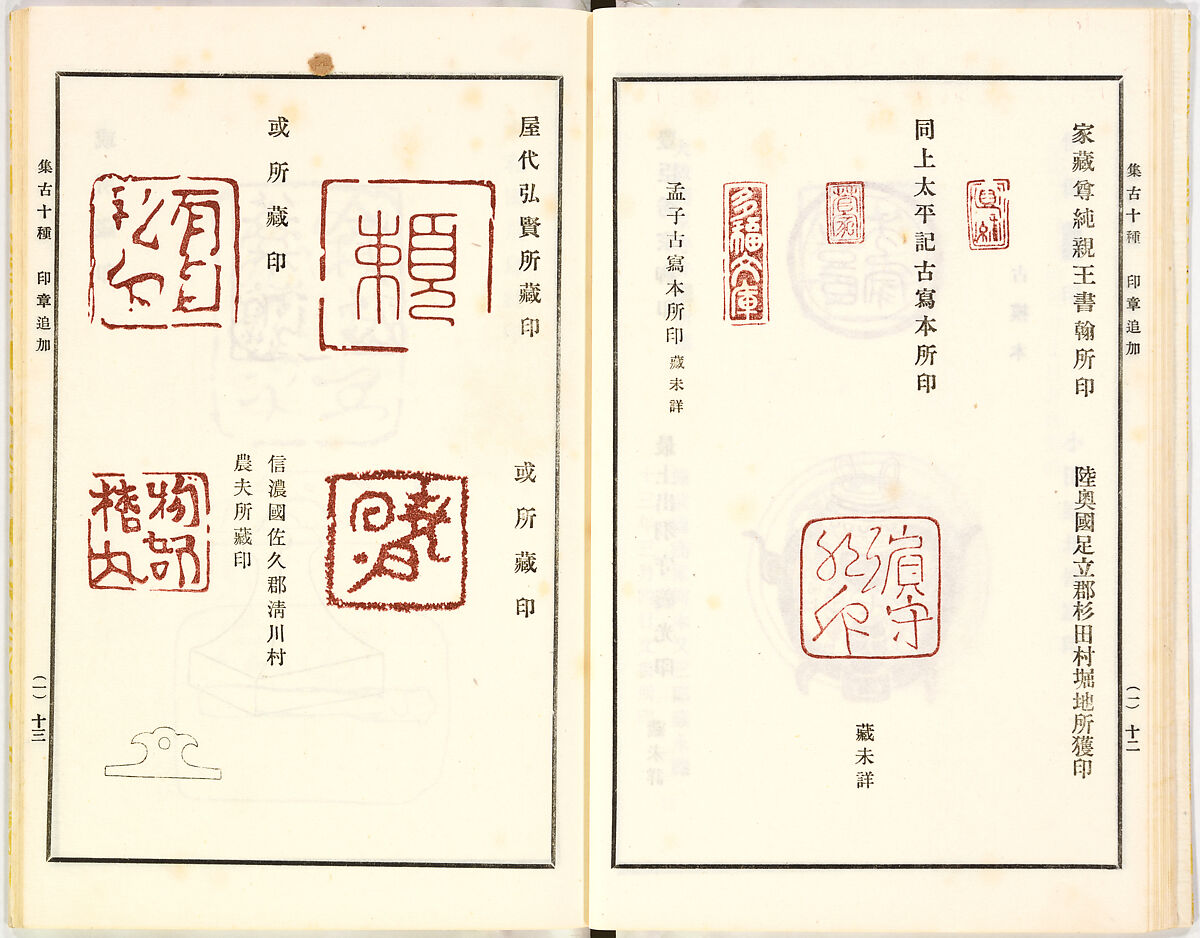 集古十種　印章追加
(一)十二
家藏尊純親王書翰所印
陸奥國足立郡杉田村堀地所獲印
同上太平記古寫本所印
藏未詳
多福文庫
孟子古寫本所印 藏未詳
屋代弘賢所藏印
賴
或所藏印
或所藏印
信濃國佐久郡淸川村
農夫所藏印
物部
集古十種　印章追加
(一)十三